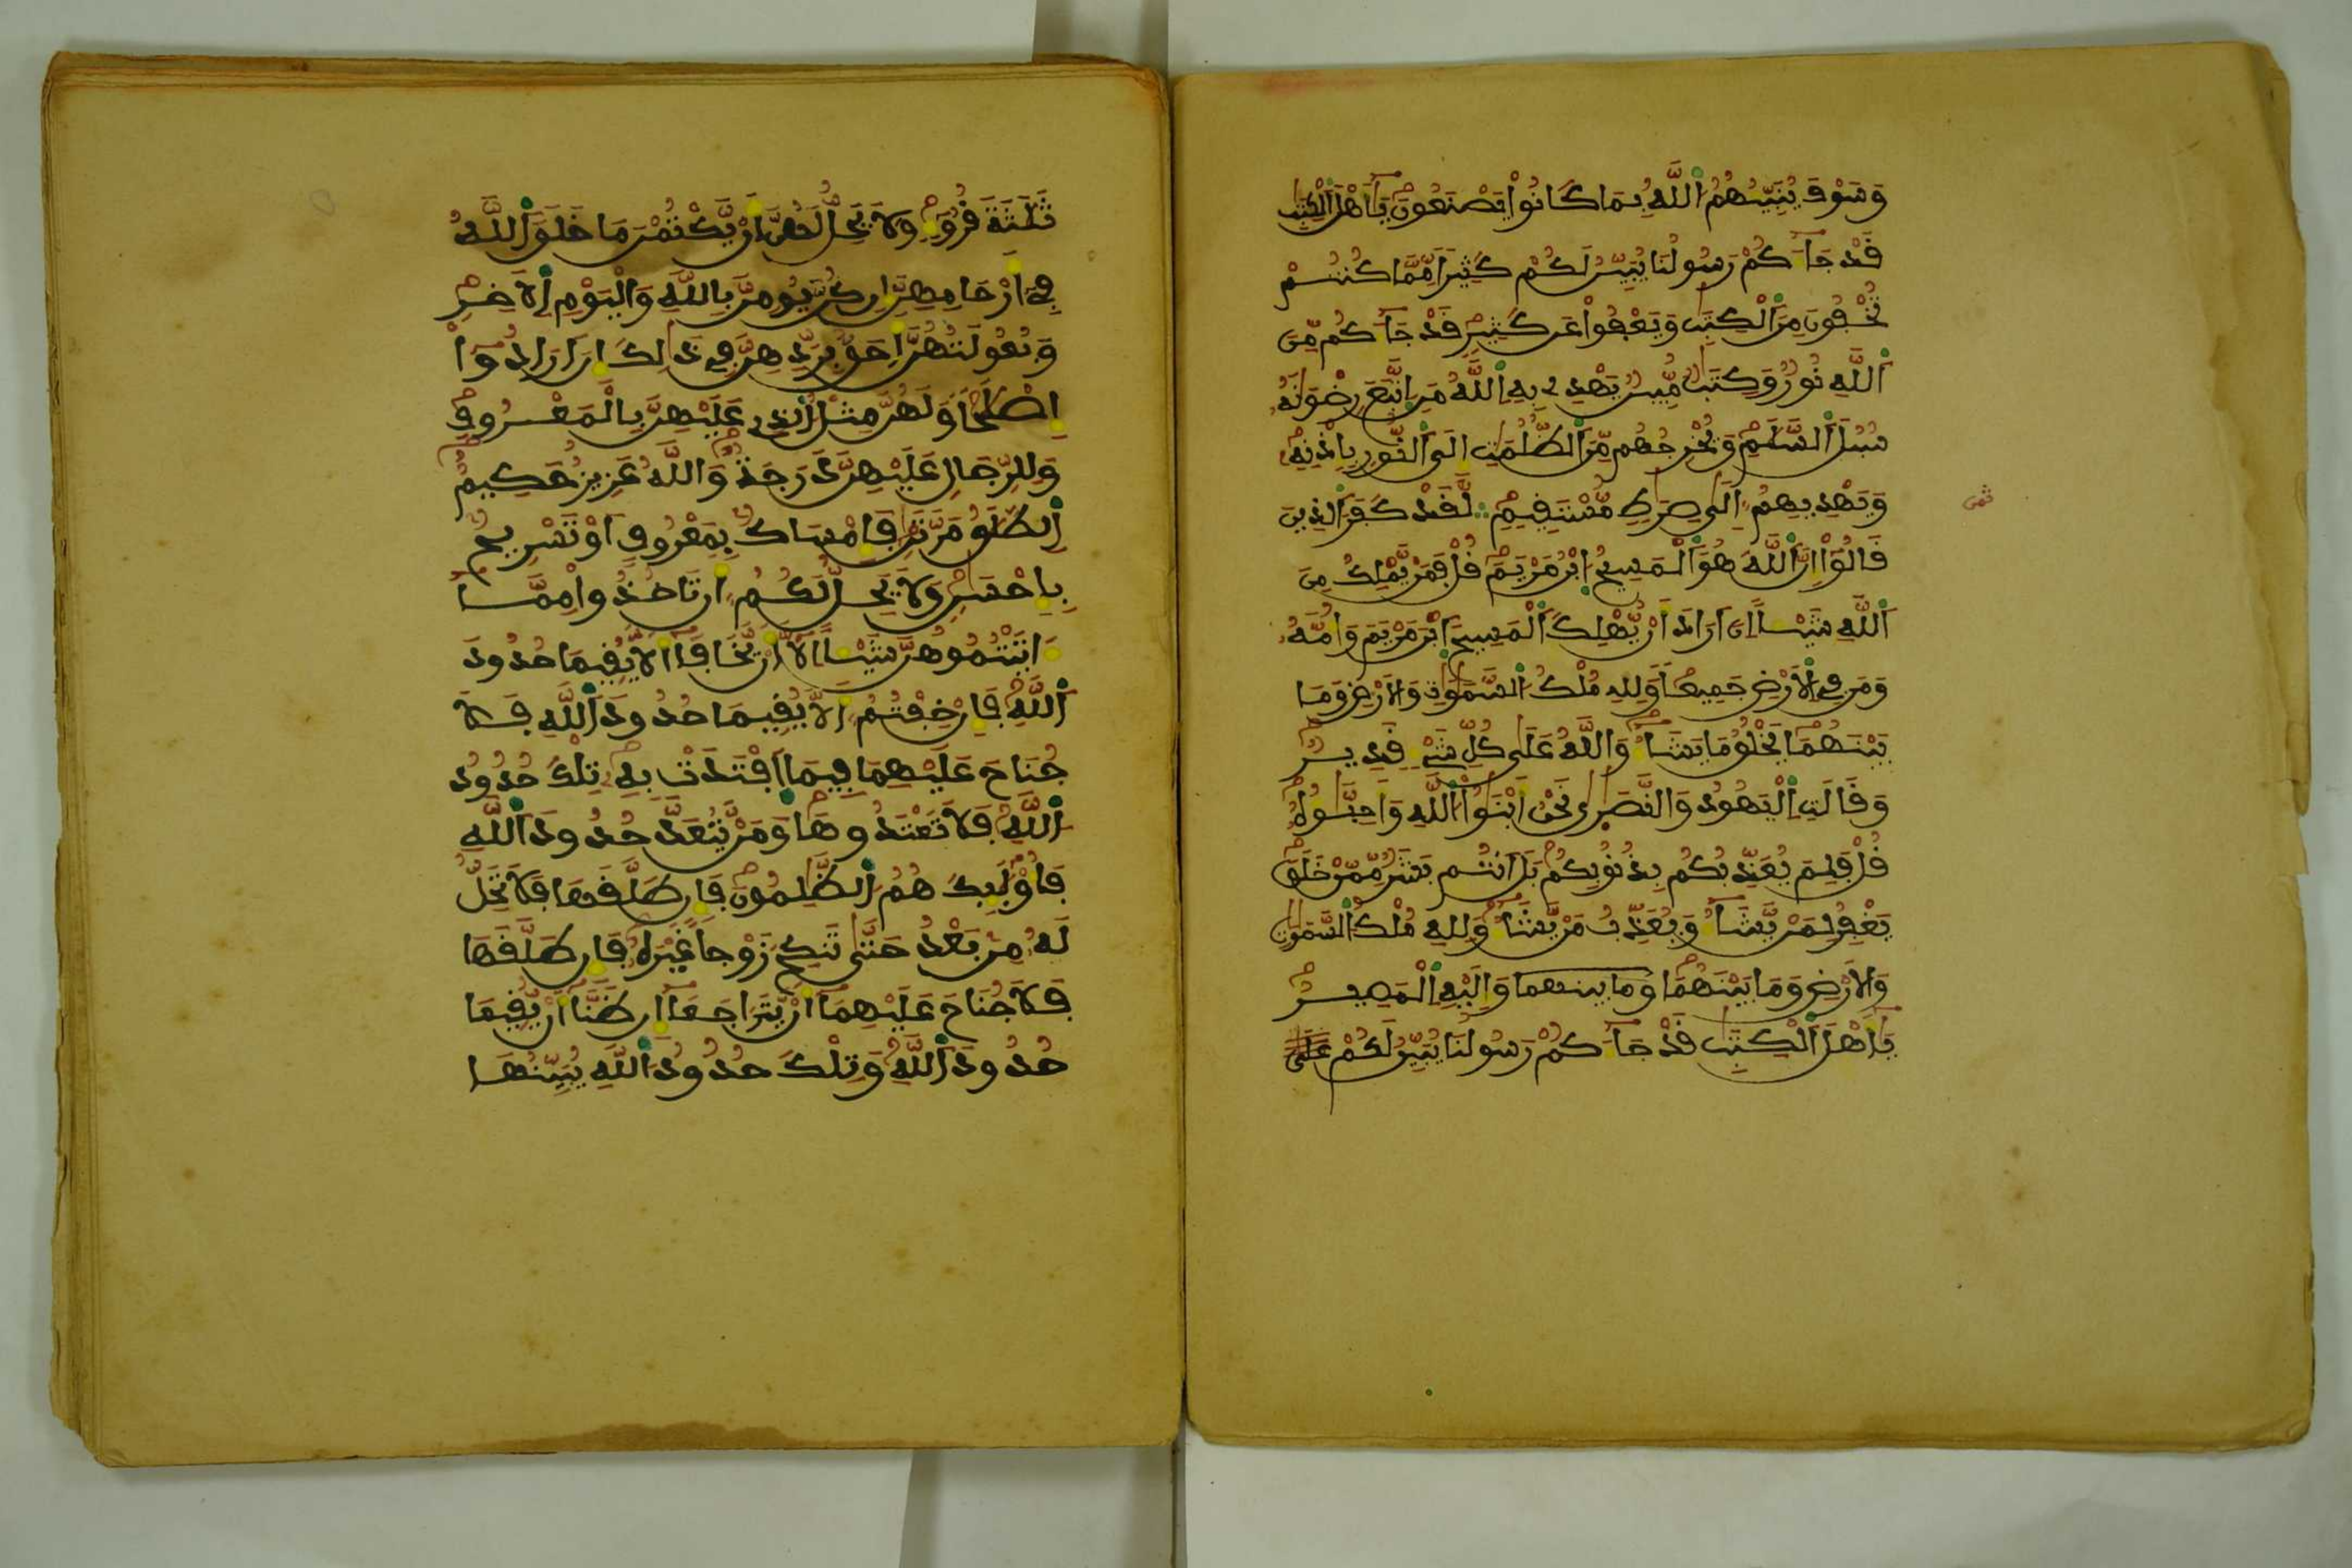 وَسَوْفَ يُنَبِّئُهُمُ اللَّهُ بِمَا كَانُوا يَصْنَعُونَ يَأَهْلَ الْكِتَبِ
قَدْ جَاءَكُمْ رَسُولُنَا يُبَيِّنُ لَكُمْ كَثِيرًا مِّمَّا كُنتُمْ
تُخْفُونَ مِنَ الْكِتَبِ وَيَعْفُوا عَن كَثِيرٍ قَدْ جَاءَكُم مِّنَ
اللَّهِ نُورٌ وَكِتَبٌ مُّبِينٌ يَهْدِي بِهِ اللَّهُ مَنِ اتَّبَعَ رِضْوَنَهُ
سُبُلَ السَّلَمِ وَيُخْرِجُهُم مِّنَ الظُّلُمَتِ إِلَى النُّورِ بِإِذْنِهِ
وَيَهْدِيهِمُ إِلَى صِرَطٍ مُّسْتَقِيمٍ لَّقَدْ كَفَرَ الذِينَ
قَالُوا إِنَّ اللَّهَ هُوَ الْمَسِيحُ ابْنُ مَرْيَمَ قُلْ فَمَنْ يَّمْلِكُ مِنَ
اللَّهِ شَيْئًا إِنَ أَرَادَ أَنْ يُّهْلِكَ الْمَسِيحَ ابْنَ مَرْيَمَ وَأُمَّهُ
وَمَن فِي الْأَرْضِ جَمِيعًا وَلِلهِ مُلْكُ السَّمَوَتِ وَالْأَرْضِ وَمَا
بَيْنَهُمَا يَخْلُقُ مَا يَشَاءُ وَاللَّهُ عَلَى كُلِّ شَيْءٍ قَدِيرٌ
وَقَالَتِ الْيَهُودُ وَالنَّصَرَى نَحْنُ أَبْنَؤُا اللَّهِ وَأَحِبَّؤُهُ
قُلْ فَلِمَ يُعَذِّبُكُم بِذُنُوبِكُم بَلَ أَنتُم بَشَرٌ مِّمَّنْ خَلَقَ
يَغْفِرُ لِمَنْ يَّشَاءُ وَيُعَذِّبُ مَنْ يَّشَاءُ وَلِلهِ مُلْكُ السَّمَوَتِ
وَالْأَرْضِ وَمَا بَيْنَهُمَا وما بينهما وَإِلَيْهِ الْمَصِيرُ
يَأَهْلَ الْكِتَبِ قَدْ جَاءَكُمْ رَسُولُنَا يُبَيِّنُ لَكُمْ عَلَى
ثمن
ثَلَثَةَ قُرُوءٍ وَلَا يَحِلُّ لَهُنَّ أَنْ يَّكْتُمْنَ مَا خَلَقَ اللَّهُ
فِي أَرْحَامِهِنَّ إِن كُنَّ يُومِنَّ بِاللَّهِ وَالْيَوْمِ الْأَخِرِ
وَبُعُولَتُهُنَّ أَحَقُّ بِرَدِّهِنَّ فِي ذَلِكَ إِنَ أَرَادُوا
إِصْلَحًا وَلَهُنَّ مِثْلُ الذِي عَلَيْهِنَّ بِالْمَعْرُوفِ
وَلِلرِّجَالِ عَلَيْهِنَّ دَرَجَةٌ وَاللَّهُ عَزِيزٌ حَكِيمٌ
الطَّلَقُ مَرَّتَنِ فَإِمْسَاكٌ بِمَعْرُوفٍ أَوْ تَسْرِيحٌ
بِإِحْسَنٍ وَلَا يَحِلُّ لَكُمُ أَن تَاخُذُوا مِمَّا
ءَاتَيْتُمُوهُنَّ شَيْئًا إِلَّا أَنْ يَّخَافَا أَلَّا يُقِيمَا حُدُودَ
اللَّهِ فَإِنْ خِفْتُمُ أَلَّا يُقِيمَا حُدُودَ اللَّهِ فَلَا
جُنَاحَ عَلَيْهِمَا فِيمَا افْتَدَتْ بِهِ تِلْكَ حُدُودُ
اللَّهِ فَلَا تَعْتَدُوهَا وَمَنْ يَّتَعَدَّ حُدُودَ اللَّهِ
فَأُوْلَئِكَ هُمُ الظَّلِمُونَ فَإِن طَلَّقَهَا فَلَا تَحِلُّ
لَهُ مِن بَعْدُ حَتَّى تَنكِحَ زَوْجًا غَيْرَهُ فَإِن طَلَّقَهَا
فَلَا جُنَاحَ عَلَيْهِمَا أَنْ يَّتَرَاجَعَا إِن ظَنَّا أَنْ يُّقِيمَا
حُدُودَ اللَّهِ وَتِلْكَ حُدُودُ اللَّهِ يُبَيِّنُهَا